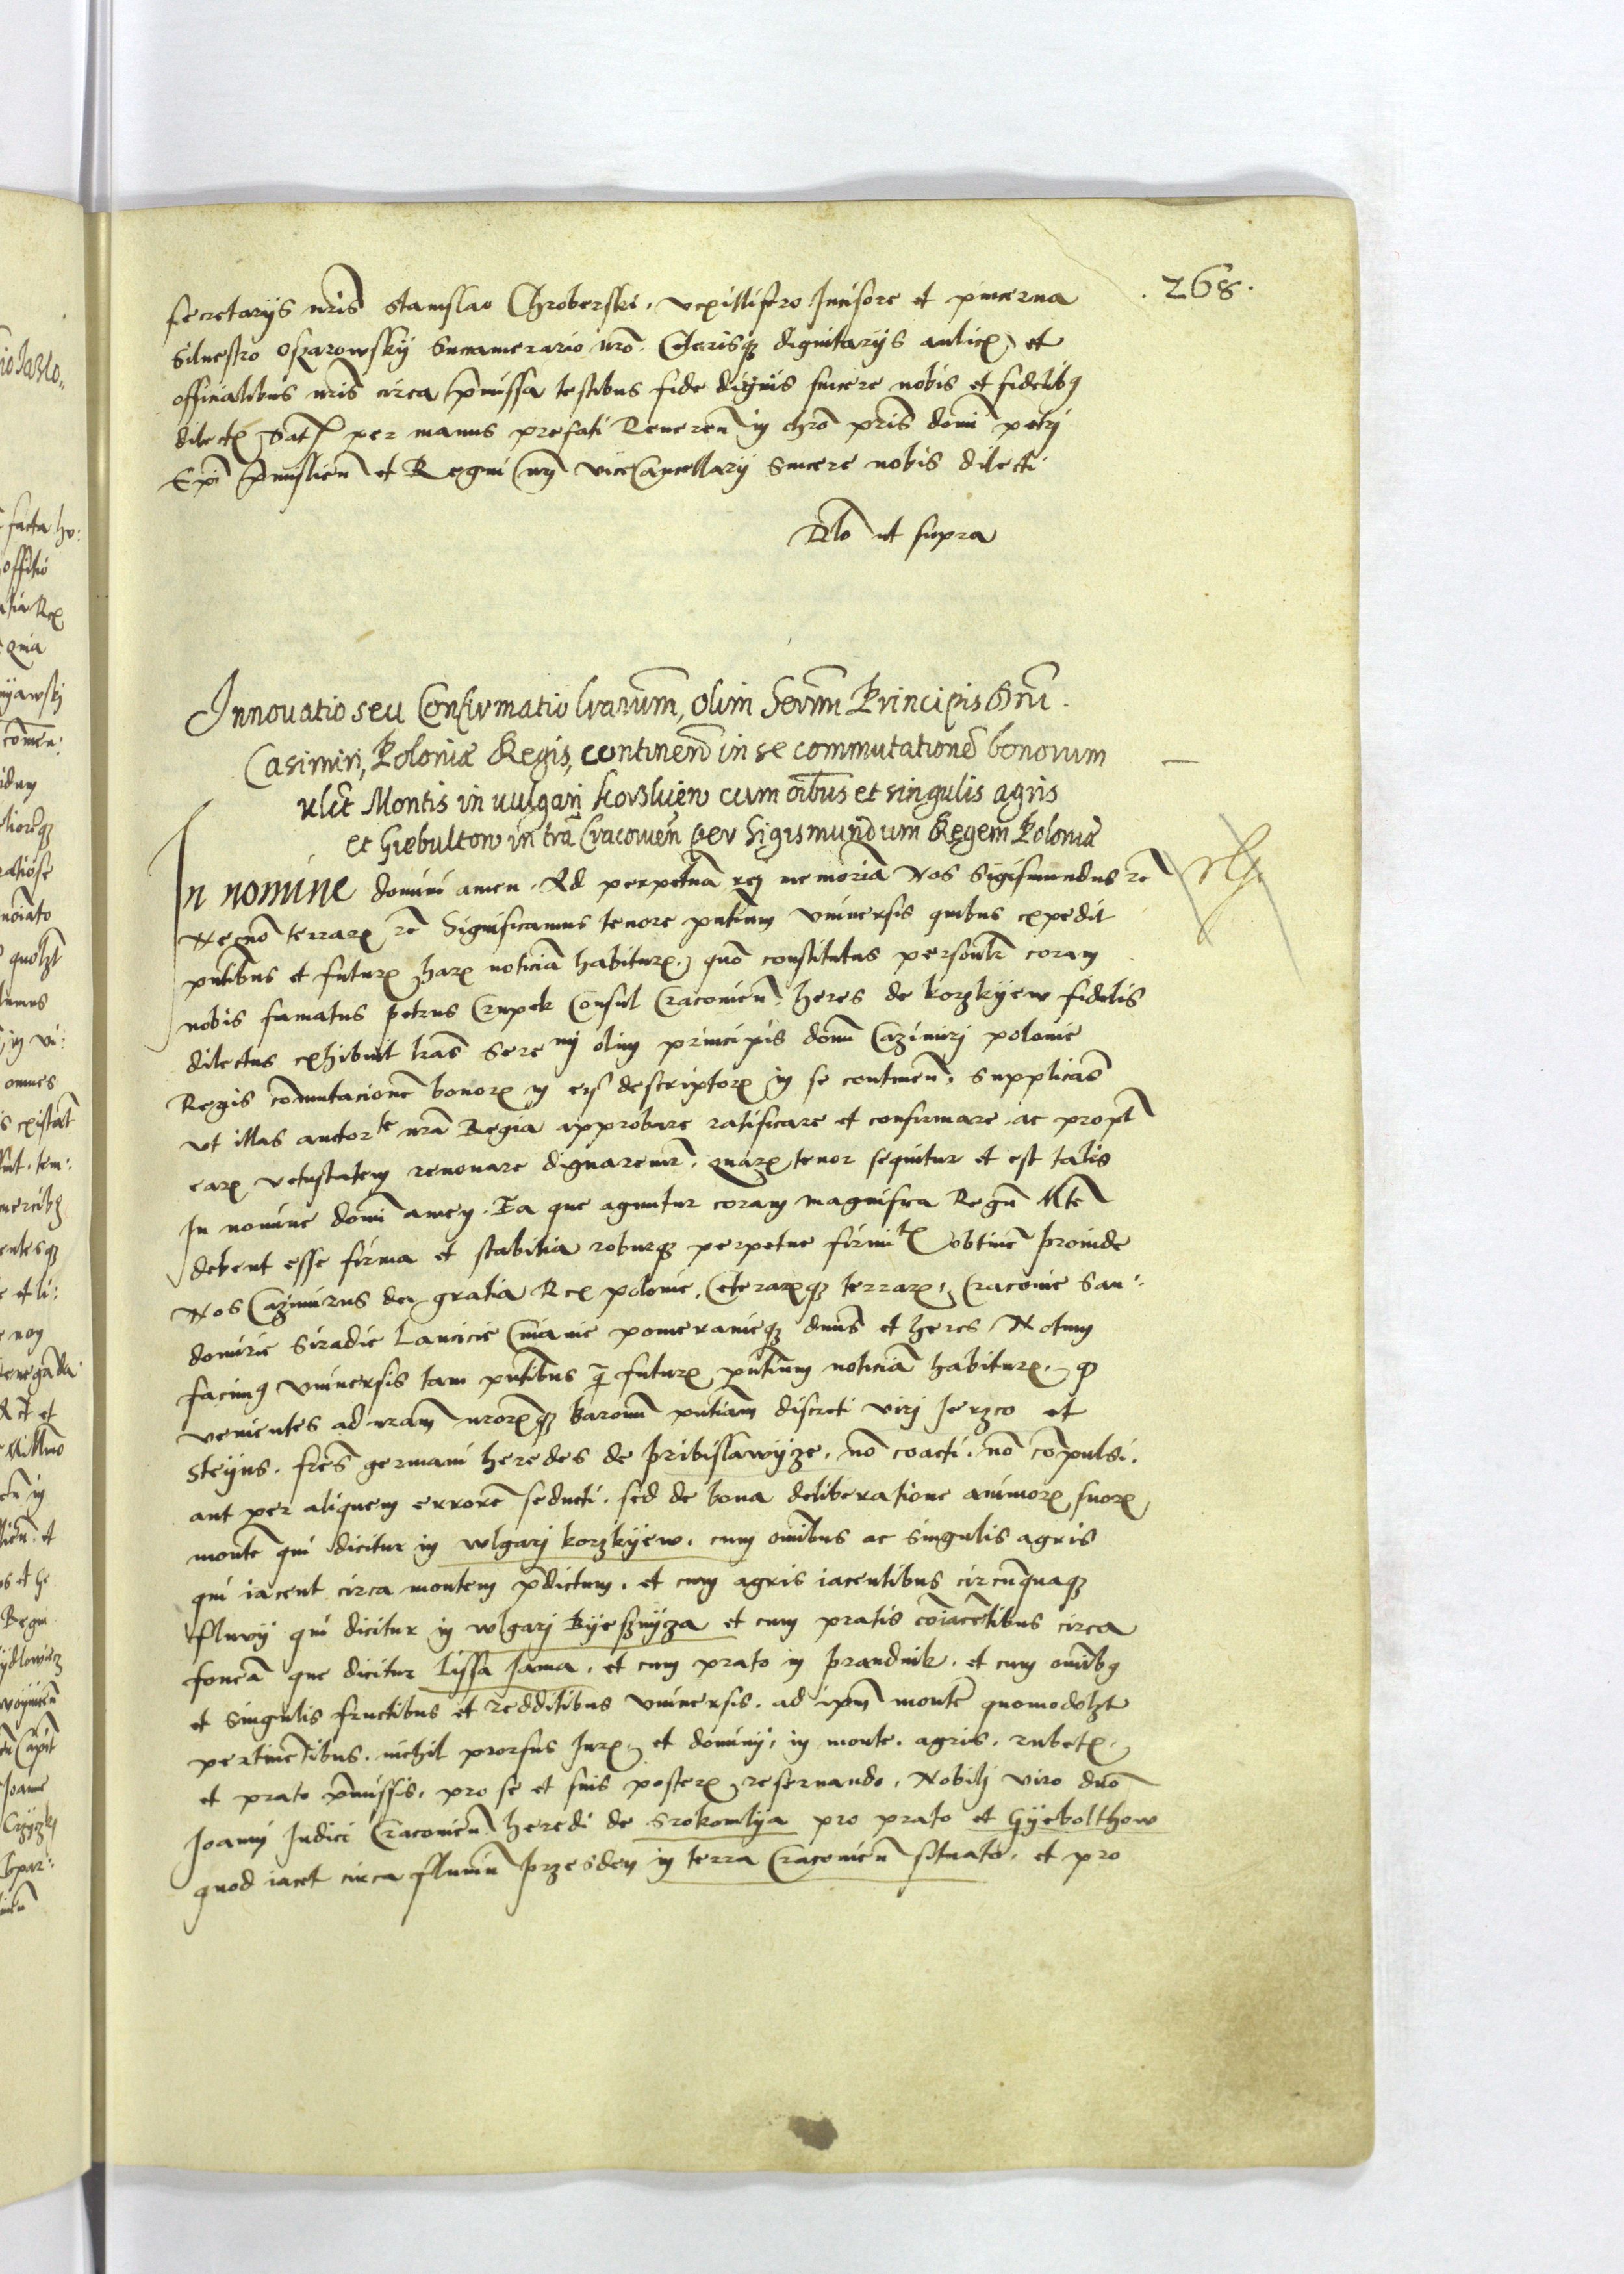 .268.
secretarijs nris Stanislao Chroberski, vexillifero Incisore et pincerna
Siluestro Ozarowskij Succamerario nro. Ceterisq dignitarijs aulicis et
officialibus nris circa premissa testibus fide dignis sincere nobis et fidelibq
dilectis per manus prefati Reueren in chro pris domi petrj
Epi premislien et Regni nri viceCancellarij Sincere nobis dilecti
Rlo ut supra
Innouatio seu Confirmatio lrarum, olim Sermi Principis Dni
Casimiri, Poloniæ Regis, continen in se commutatione bonorum
ulct Montis in uulgarj Korzkiew cum oibus et singulis agris
et Giebultow in tra Cracouien per Sigismundum Regem Poloniæ
In nomine domini amen. Ad perpetua rei memoria Nos Sigismundus rc
Necno terrarum rc Significamus tenore pntium Vniuersis quibus expedit
pntibus et futuris harum noticia habituris, quo constitutus personlr coram
nobis famatus petrus Crupek Consul Cracouien, heres de Korzkyew fidelis
dilectus exhibuit lras Serenmi olim principis domi Cazimirj polonie
Regis comutacione bonorum in eis descriptorum in se continen, Supplicas
vt illas auctorte nra Regia approbare ratificare et confirmare ac propt
earum vetustatem renouare dignaremr, quarum tenor sequitur et est talis
In nomine domi amen. Ea que aguntur coram magnifica Regu Mte
debent esse firma et stabilia roburq perpetue firmitatis obtine proinde
Nos Cazimirus dei gratia Rex polonie, Ceterarumq terrarum, Cracouie San:
domirie Siradie Lancicie Cuiauie pomeranieq dnus et heres Notum
facimq vniuersis tam pntibus q futuris pntium noticia habituris, q
venientes ad nram nrorumq Baronu pntiam discreti virj Jerzco et
Steijns, fres germani heredes de Pribislawijze, no coacti, no compulsi,
aut per aliquem errore seducti, sed de bona deliberatione animorum suorum
monte qui dicitur in wlgarj korzkijew, cum omibus ac singulis agris
qui iacent circa montem pdictum, et cum agris iacentibus circuquaq
fluvij qui dicitur in wlgarj Bijesznijza et cum pratis coiacetibus circa
fouea que dicitur Lissa Jama, et cum prato in prandnik, et cum omibq
et Singulis fructibus et redditibus vniuersis, ad ipm monte quomodolzt
pertinetibus, nichil prorsus Juris et dominij, in monte, agris, rubetis,
et prato pmissis, pro se et suis posteris reseruando, Nobilj viro dno
Joannj Judici Cracouien heredi de Srokomlija pro prato et Gijebolthow
quod iacet circa fluuiu Przesden in terra Cracouien situato, et pro